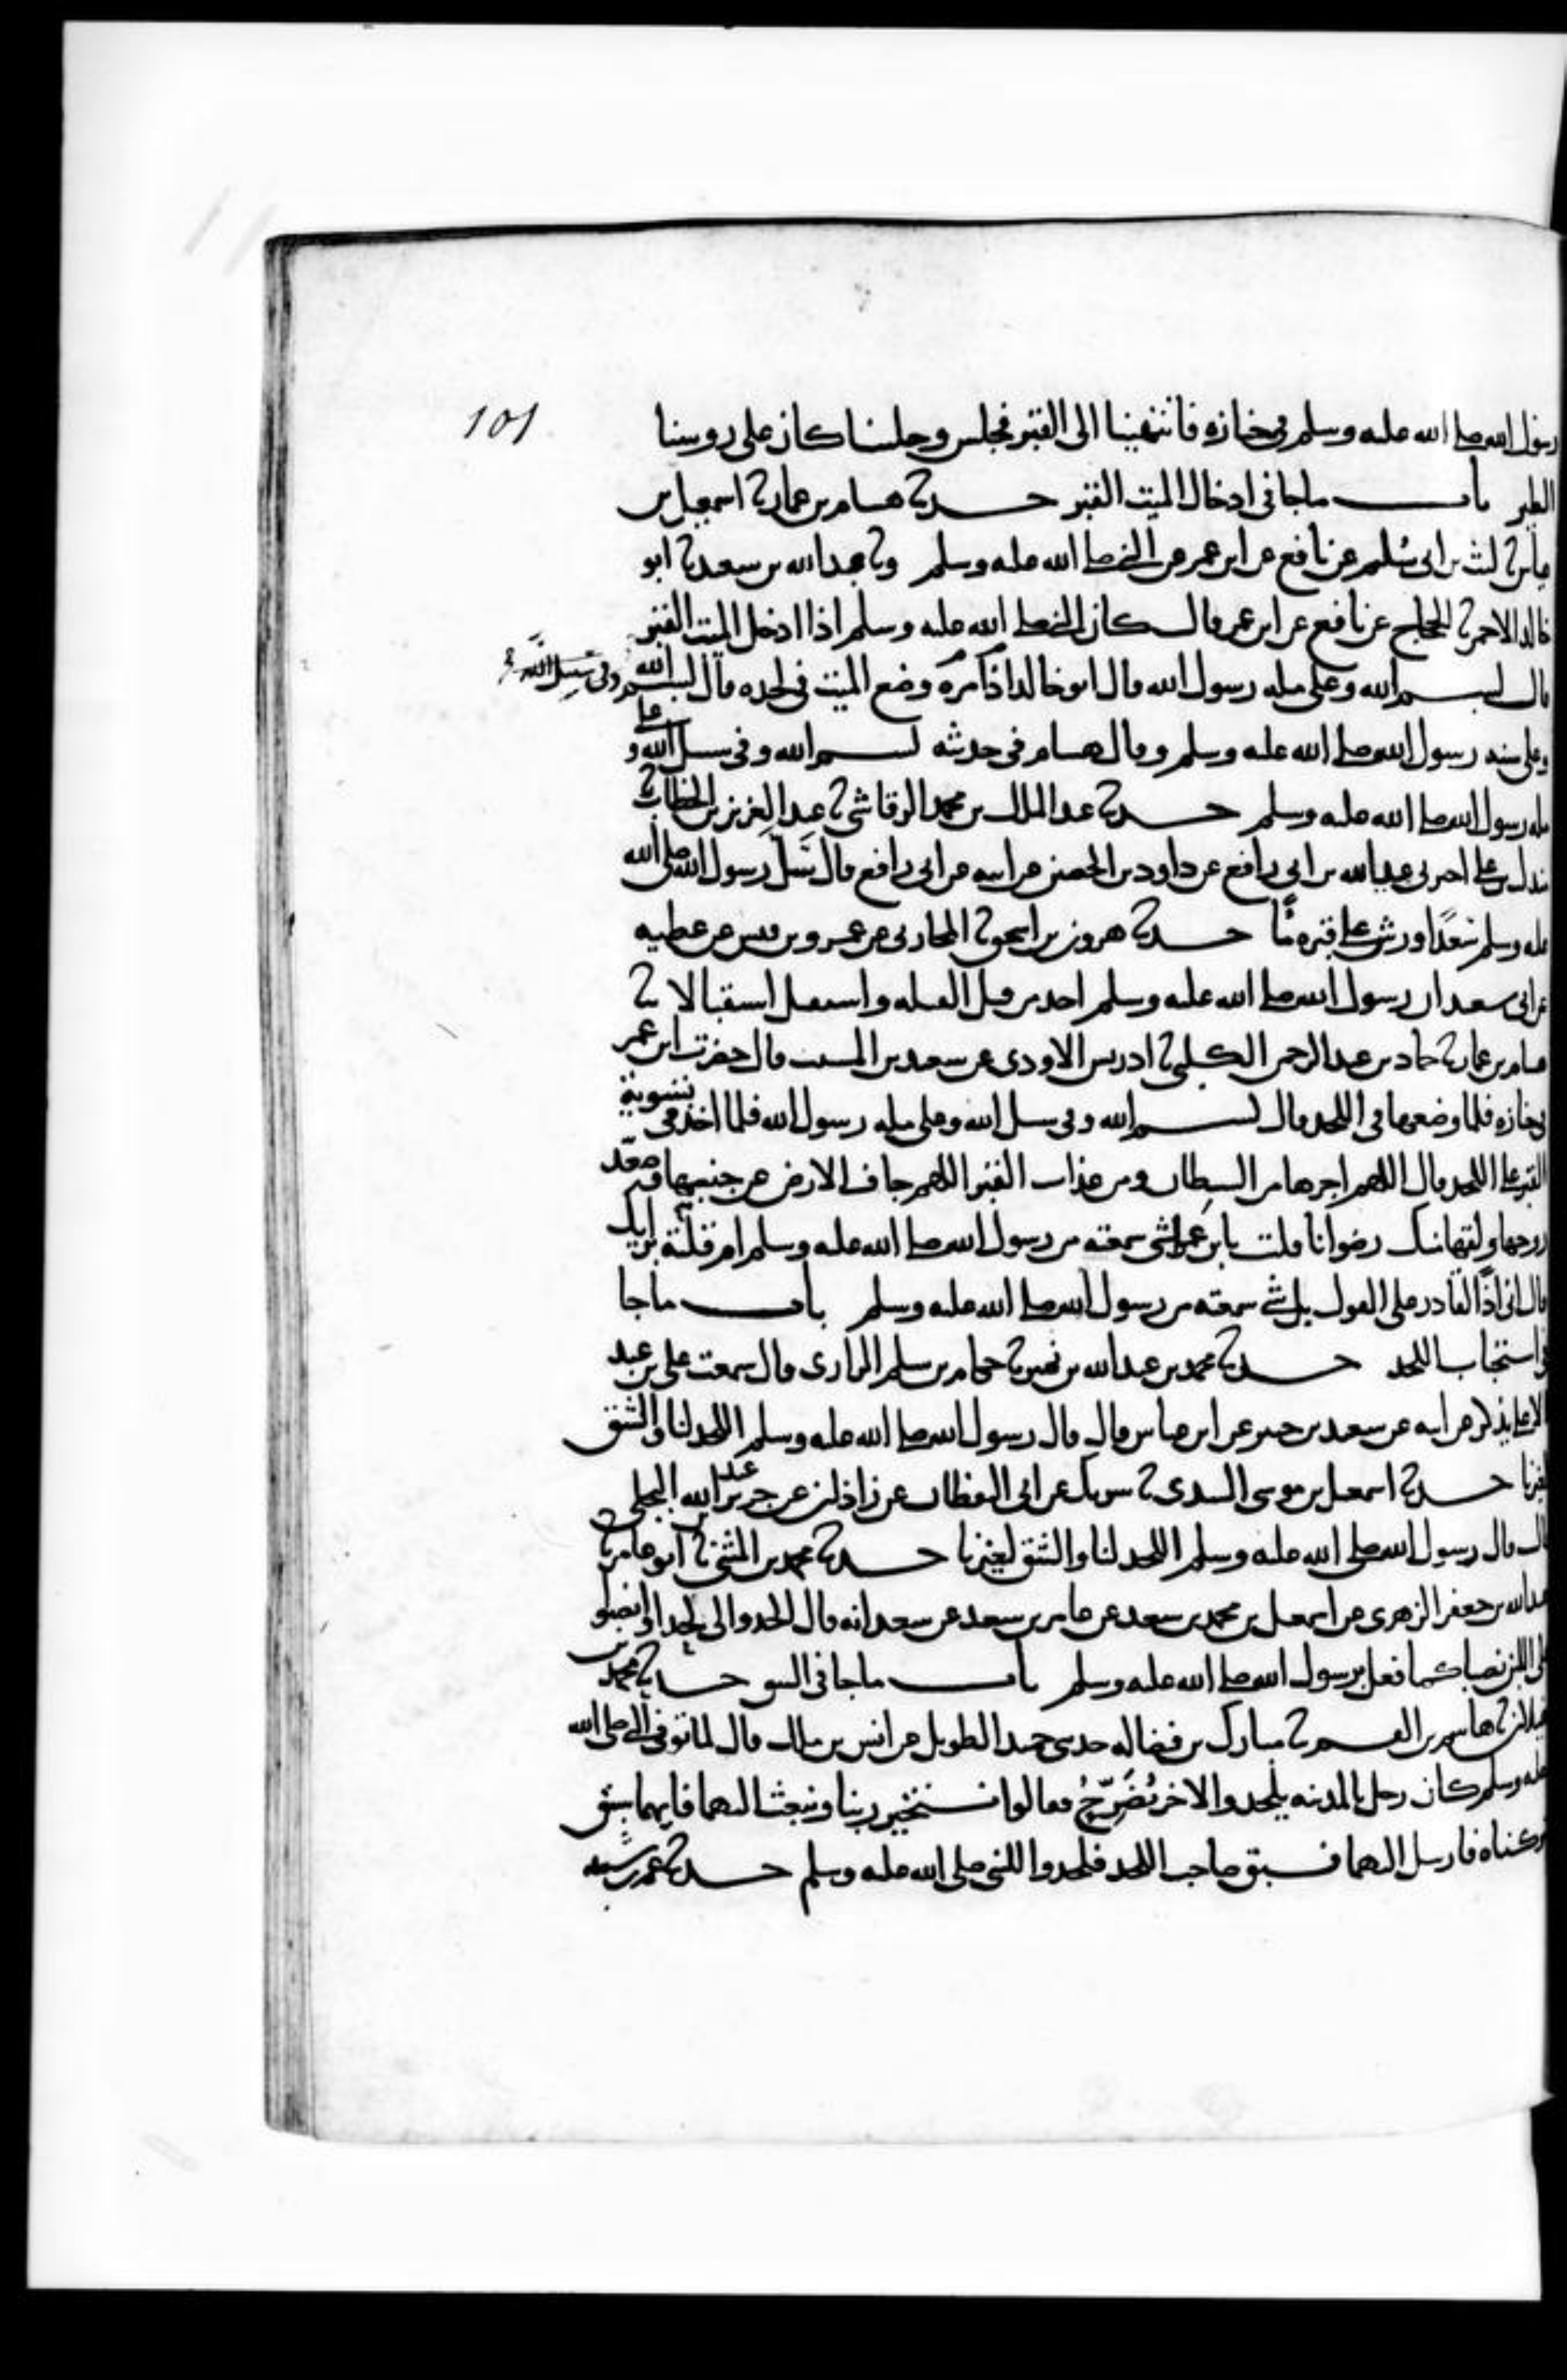 101
رسول الله صلى الله عليه وسلم في جنازة فانتهينا الى القبر فجلس وجلسنا كان على روسنا
الطير باب ما جا في ادخال الميت القبر حدثنا هشام بن عمار ثنا اسمعيل بن
عياش ثنا ليث بن ابي سُليم عن نافع عن ابن عمر عن النبي صلى الله عليه وسلم وثنا عبد الله بن سعيد ثنا ابو
خالد الاحمر ثنا الحجاج عن نافع عن ابن عمر قال كان النبي صلى الله عليه وسلم اذا ادخل الميت القبر
قال بسم الله وعلى مله رسول الله قال ابو خالد اذا مره وضع الميت في لحده قال بسم الله
وفي سبيل الله
وعلى سنه رسول الله صلى الله عليه وسلم وقال هشام في حديثه بسم الله وفي سبيل الله وعلى
مله رسول الله صلى الله عليه وسلم حدثنا عبد الملك بن محمد الرقاشي ثنا عبد العزيز بن الخطاب ثنا
مندل بن علي اخبرني عبيد الله بن ابي رافع عن داود بن الحصين عن ابيه عن ابي رافع قال سَلَّ رسول الله صلى الله
عليه وسلم سَعْدًا ورش على قبره مًا حدثنا هرون بن اسحق ثنا المحاربي عن عمرو بن قيس عن عطيه
عن ابي سعيد ان رسول الله صلى الله عليه وسلم اخذ من قبل القبله واستقبل استقبالا ثنا
هشام بن عمار ثنا حماد بن عبد الرحمن الكلبي ثنا ادريس الاودي عن سعيد بن المسيب قال حضرت ابن عمر
في جنازه فلما وضعها في اللحد قال بسم الله وفي سبيل الله وعلى مله رسول الله فلما اخذ في تسوية
القبر على اللحد قال اللهم اجرها من الشيطان ومن عذاب القبر اللهم جاف الارض عن جنبيها وصعد
روحها ولقها منك رضوانا قلت يا بن عمر اشي سمعته من رسول الله صلى الله عليه وسلم ام قلته برايك
قال اني اذًا لقادر على القول بل شي سمعته من رسول الله صلى الله عليه وسلم باب ما جا
في استحباب اللحد حدثنا محمد بن عبد الله بن نمير ثنا حكام بن سلم الرازي قال سمعت علي بن عبد
الاعلى يذكر عن ابيه عن سعيد بن جبير عن ابن عباس قال قال رسول الله صلى الله عليه وسلم اللحد لنا والشق
لغيرنا حدثنا اسمعيل بن موسى السدي ثنا شريك عن ابي اليقظان عن زاذان عن جرير بن عبد الله البجلي
قال قال رسول الله صلى الله عليه وسلم اللحد لنا والشق لغيرنا حدثنا محمد بن المثنى ثنا ابو عامر ثنا
عبد الله بن جعفر الزهري عن اسمعيل بن محمد بن سعد عن عامر بن سعد عن سعد انه قال الحدوا لي لحدا وانصبوا
على اللبن نصبا كما فعل برسول الله صلى الله عليه وسلم باب ما جا في الشق حدثنا محمود بن
غيلان ثنا هاشم بن القسم ثنا مبارك بن فضاله حدثني حميد الطويل عن انس بن مالك قال لما توفي النبي صلى الله
عليه وسلم كان رجل بالمدينه يلحد والاخر يُضَرِّحُ فقالوا نستخير ربنا ونبعث اليهما فايهما سبق
تركناه فارسل اليهما فسبق صاحب اللحد فلحدوا للنبي صلى الله عليه وسلم حدثنا عمر بن شبه